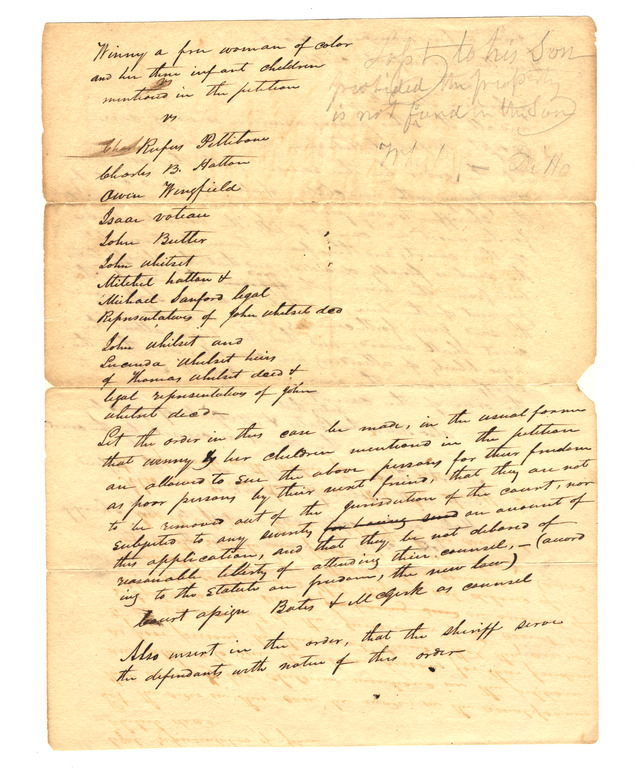 Winny a free woman of color
and her three infant children
mentioned in the petition
vs
Rufus Pettibone
Charles B. Hatton
Owen Wingfield
Isaac Voteau
John Butler
John Whitset
Mitchel Hatton &
Michael Sanford legal
Representatives of John Whitset decd
John Whitset and
Lucinda Whitset heirs
of Thomas Whitset decd &
legal representatives of John
Whitset decd—
Let the order in this case be made, in the usual forme
that Winny & her children mentioned in the petition
are allowed to sue the above persons for their freedom
as poor persons by their next friend, that they are not
to be removed out of the jurisdiction of the court, nor
subjected to any severity for having sued on account of
this application, and that they be not debared of
reasonable liberty of attending their counsel, — (accord
ing to the Statute on freedom, the new law)
Court assign Bates & McGirk as counsel
Also insert in the order, that the sheriff serve
the defendants with notice of this order
to his Son
provided the property
is not found in the Son